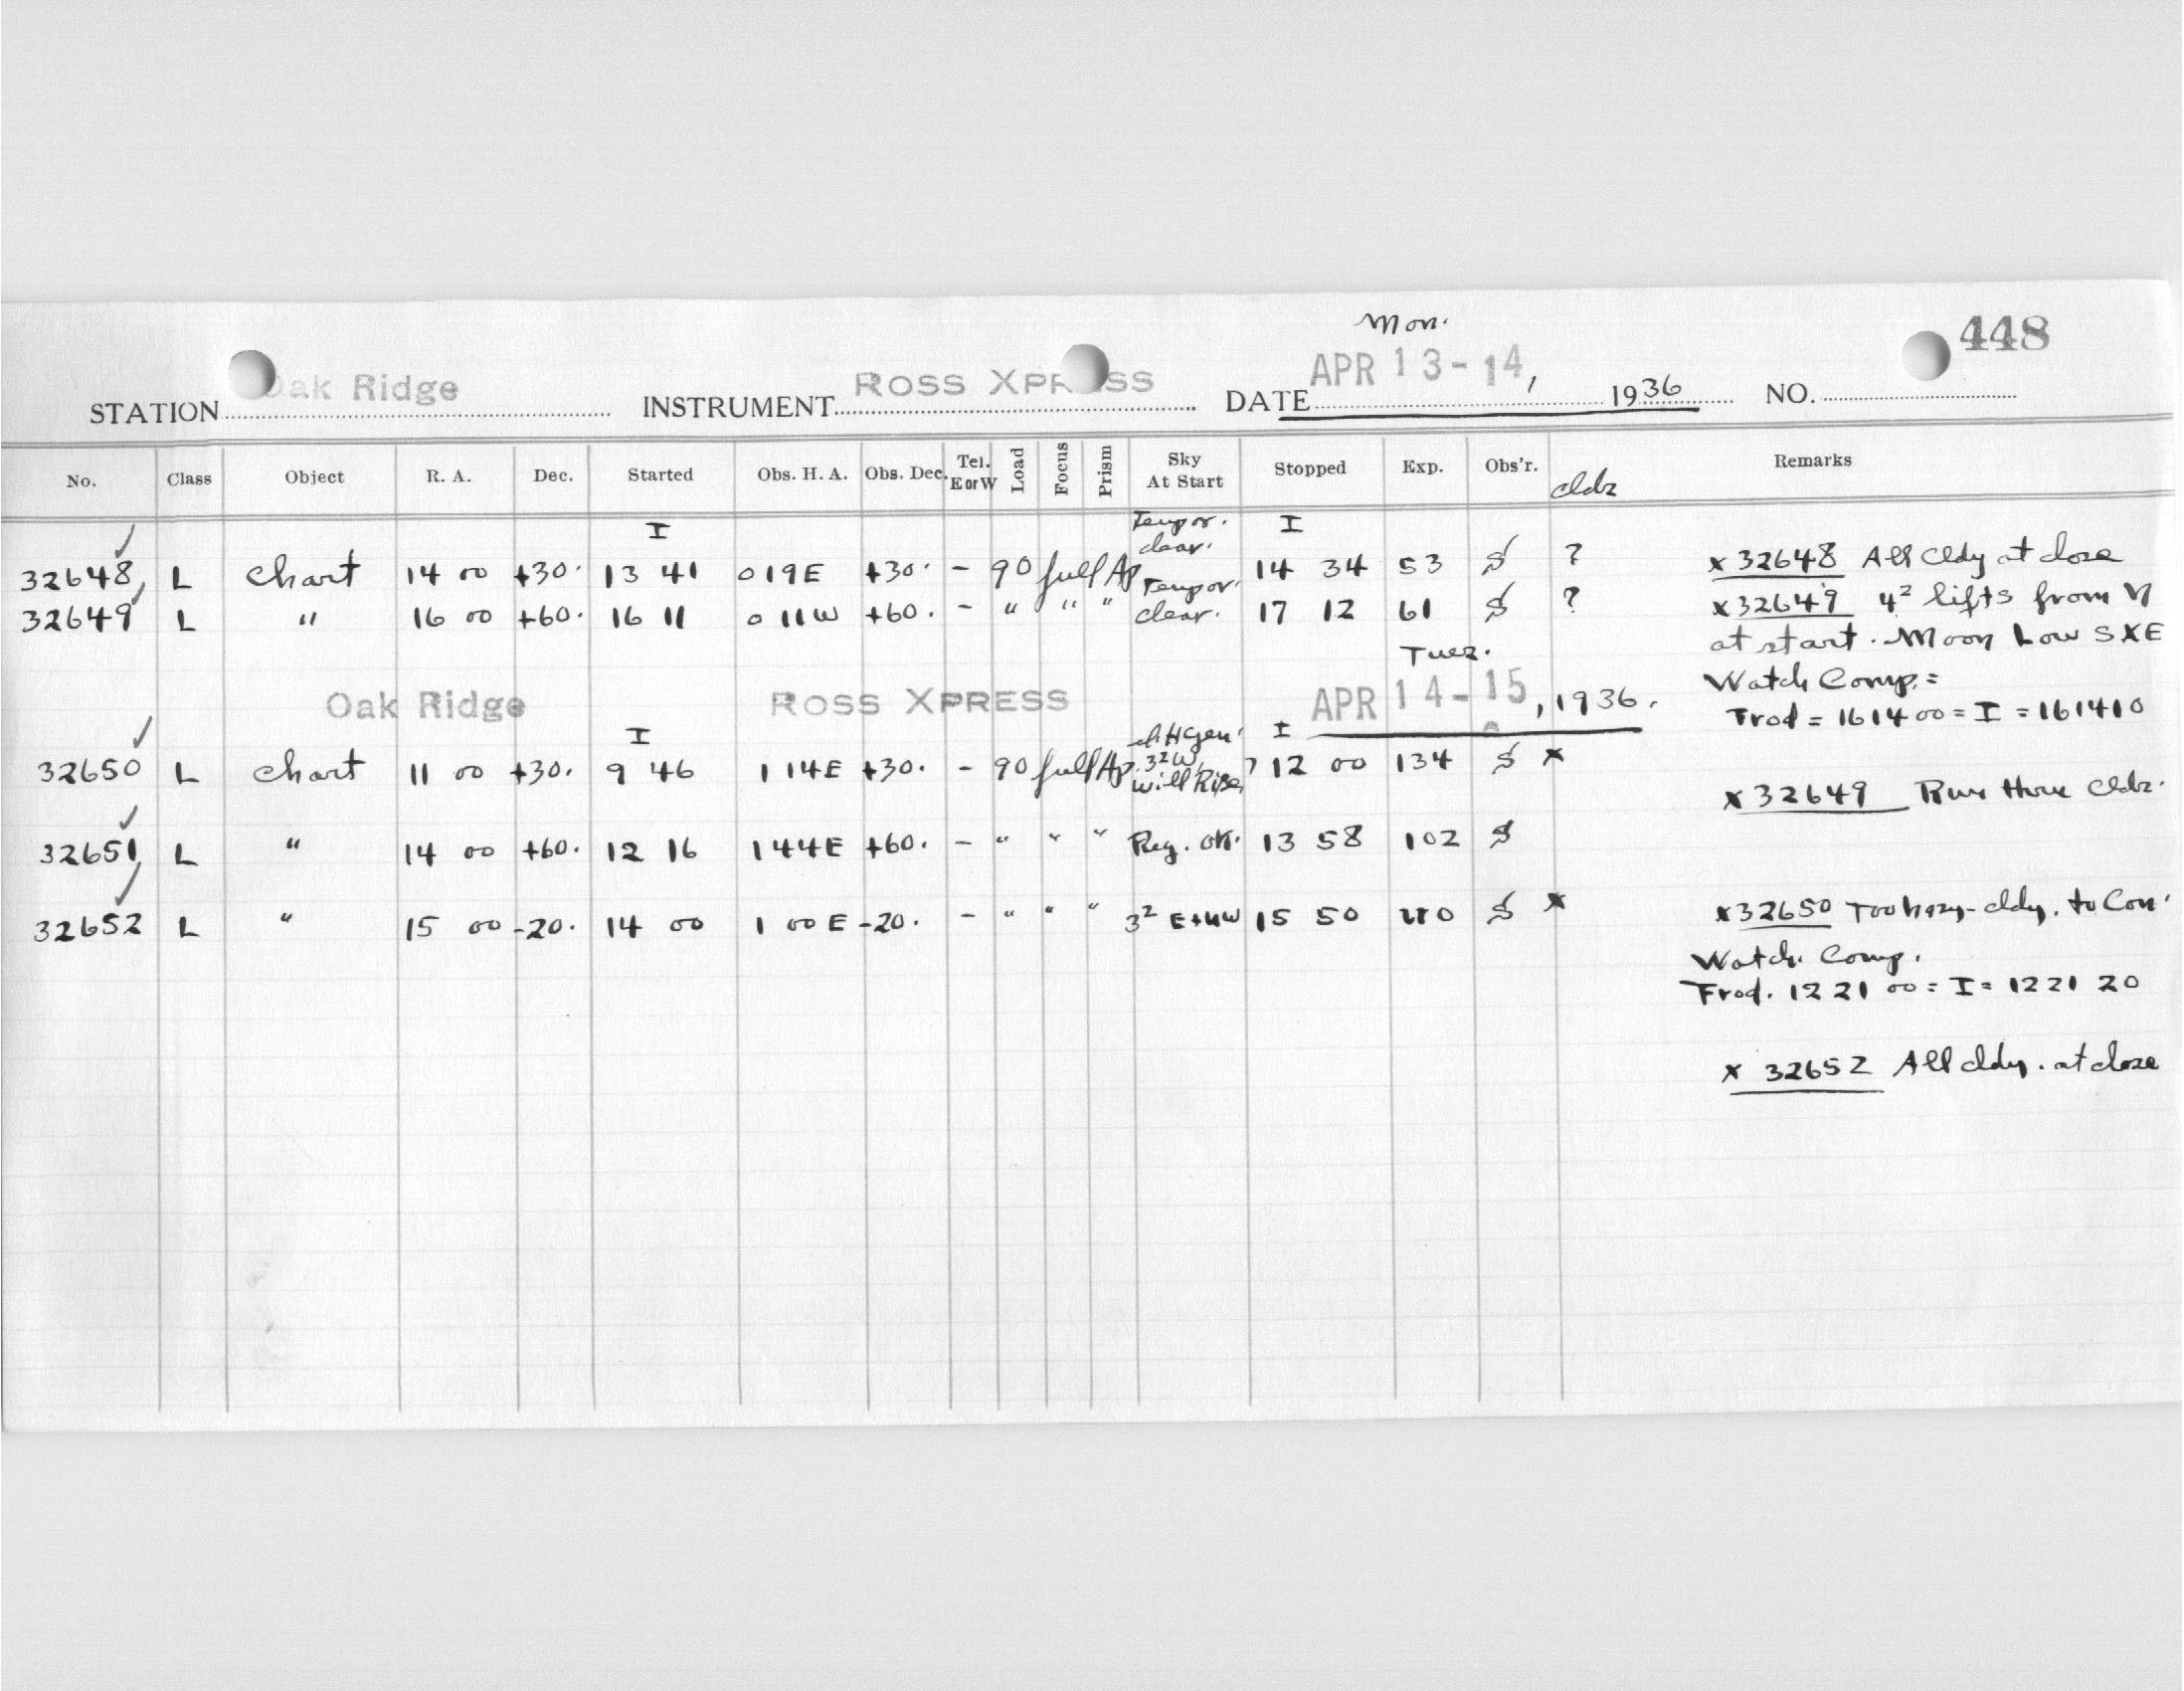 Mon.
448
STATION Oak Ridge INSTRUMENT ROSS XPRESS DATE APR 13-14, 1936 NO.
No. Class Object R. A. Dec. Started Obs. H. A. Obs. Dec. Tel. E or W Load Focus Prism Sky At Start Stopped Exp. Obs'r. cldz Remarks
I Tempor. clear. I
32648 L Chart 14 00 +30. 13 41 0 19E +30. - 90 full Ap 14 34 53 S ? x 32648 All Cldy at close
32649 L " 16 00 +60. 16 11 0 11W +60. - " " " Tempor. clear. 17 12 61 S ? x 32649 4² lifts from
at start. Moon Low SXE
Tues.
Watch Comp. =
Oak Ridge ROSS XPRESS APR 14-15, 1936.
Frod = 16 14 00 = I = 16 14 10
I I
32650 L Chart 11 00 +30. 9 46 1 14E +30. - 90 full Ap. 3²W, will Rise, ? 12 00 134 S x
x 32649 Run thru cldz.
32651 L " 14 00 +60. 12 16 1 44E +60. - " " " Reg. ok. 13 58 102 S
32652 L " 15 00 -20. 14 00 1 00 E -20. - " " " 3² E+NW 15 50 110 S x
x 32650 Too hazy-cldy. to Con.
Watch Comp.
Frod. 12 21 00 = I = 12 21 20
x 32652 All cldy. at close